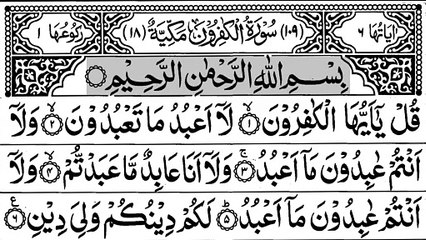 اٰیَاتُهَا ٦ (١٠٩) سُوْرَةُ الْكٰفِرُوْنَ مَكِّيَّةٌ (١٨) رُكُوْعُهَا ١
بِسْمِ اللّٰهِ الرَّحْمٰنِ الرَّحِيْمِ
قُلْ يٰۤاَيُّهَا الْكٰفِرُوْنَ ۙ﴿١﴾ لَاۤ اَعْبُدُ مَا تَعْبُدُوْنَ ۙ﴿٢﴾ وَلَاۤ
اَنْتُمْ عٰبِدُوْنَ مَاۤ اَعْبُدُ ۚ﴿٣﴾ وَلَاۤ اَنَا عَابِدٌ مَّا عَبَدْتُّمْ ۙ﴿٤﴾ وَلَاۤ
اَنْتُمْ عٰبِدُوْنَ مَاۤ اَعْبُدُ ؕ﴿٥﴾ لَكُمْ دِيْنُكُمْ وَلِيَ دِيْنِ ﴿٦﴾ ع